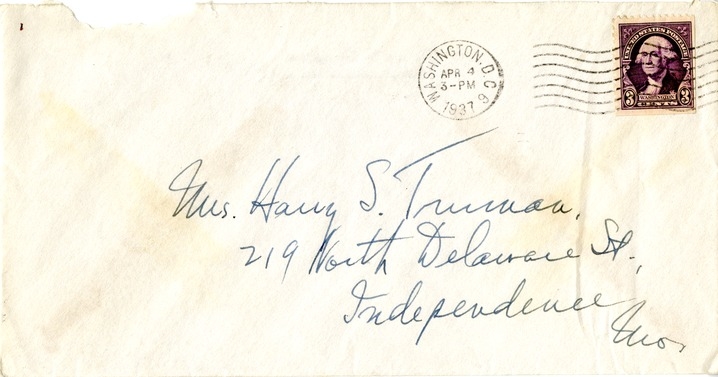 WASHINGTON, D.C. 9
APR 4
3-PM
1937
UNITED STATES POSTAGE
3 WASHINGTON 3
Mrs. Harry S. Truman,
219 North Delaware St.,
Independence
Mo.